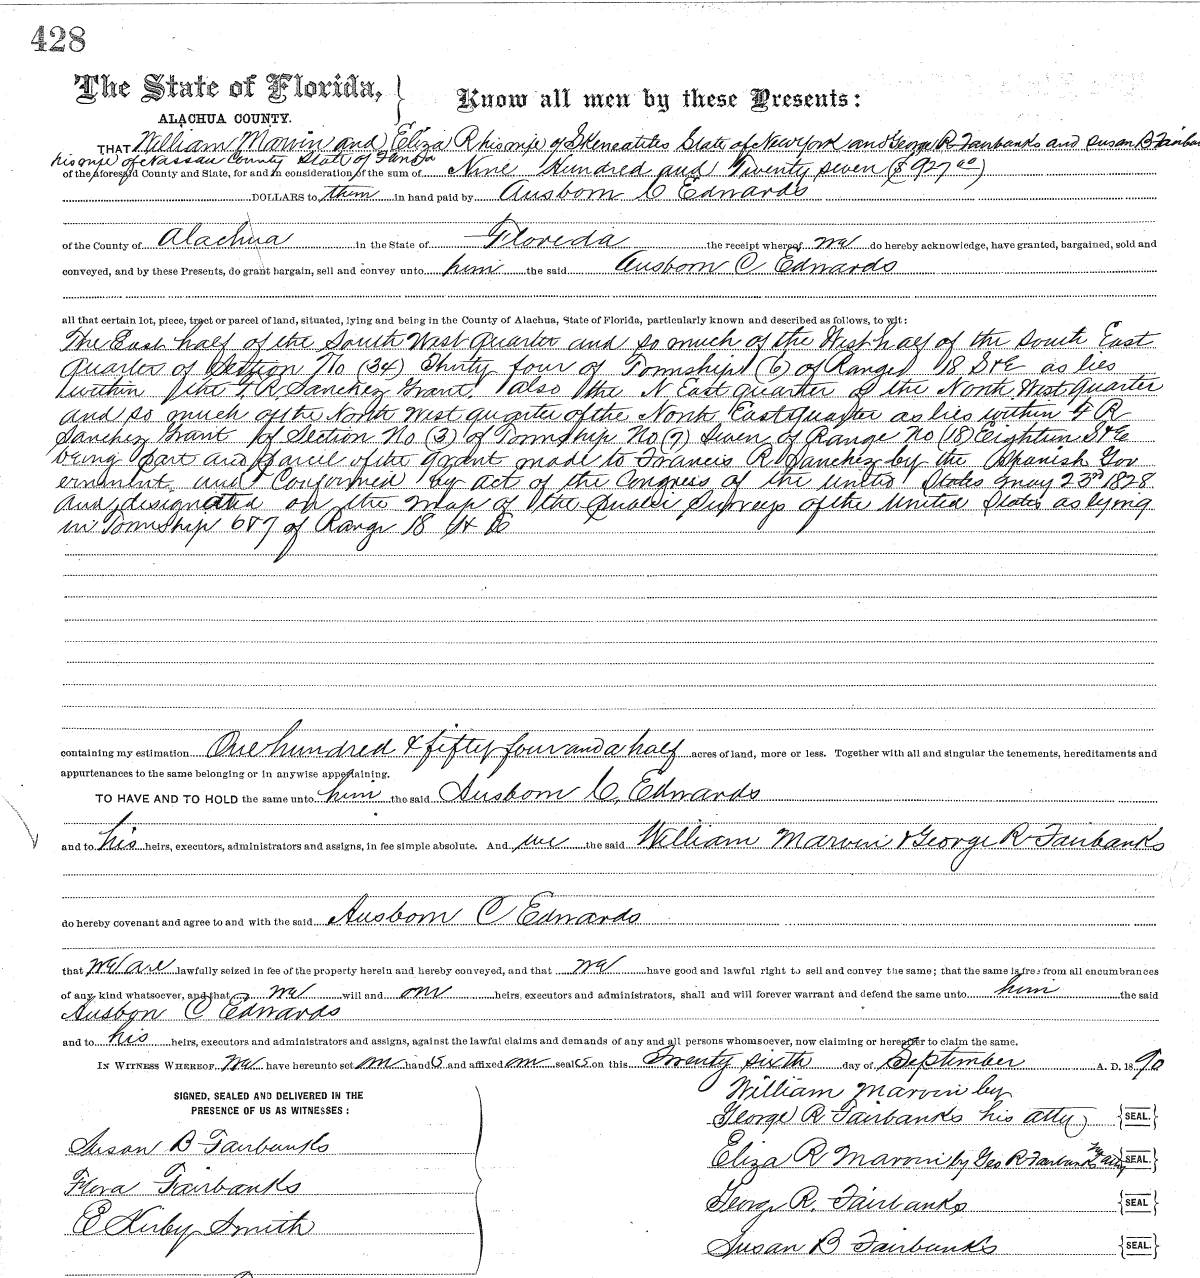 428
The State of Florida,
ALACHUA COUNTY.
Know all men by these Presents:
THAT William Marvin and Eliza R his wife of Skeneatites State of New York and George R Fairbanks and Susan B Fairban
his wife of Nassau County State of
of the aforesaid County and State, for and in consideration of the sum of Nine Hundred and Twenty seven ($927 00)
DOLLARS to them in hand paid by Ausborn C Edwards
of the County of Alachua in the State of Floreda the receipt whereof we do hereby acknowledge, have granted, bargained, sold and
conveyed, and by these Presents, do grant bargain, sell and convey unto him the said Ausborn C Edwards
all that certain lot, piece, tract or parcel of land, situated, lying and being in the County of Alachua, State of Florida, particularly known and described as follows, to wit:
The East half of the South West quarter and so much of the West half of the South East
Quarter of Section No (34) Thirty four of Township (6) of Range 18 S & E as lies
within the F. R. Sanchez Grant. also the N East quarter of the North West quarter
and so much of the North West quarter of the North East quarter as lies within F R
Sanchez Grant of Section No (3) of Township No (7) Seven of Range No (18) Eighteen S & E
being part and parcel of the grant made to Francis R Sanchez by the Spanish Gov
ernment and Conformed by act of the Congress of the united States may 23rd 1828
and designated on the map of the Surveys of the United States as lying
in Township 6 & 7 of Range 18 S & E
containing my estimation One hundred & fifty four and a half acres of land, more or less. Together with all and singular the tenements, hereditaments and
appurtenances to the same belonging or in anywise appertaining.
TO HAVE AND TO HOLD the same unto him the said Ausborn C. Edwards
and to his heirs, executors, administrators and assigns, in fee simple absolute. And we the said William Marvin & George R Fairbanks
do hereby covenant and agree to and with the said Ausborn C Edwards
that we are lawfully seized in fee of the property herein and hereby conveyed, and that we have good and lawful right to sell and convey the same; that the same is free from all encumbrances
of any kind whatsoever, and that we will and our heirs, executors and administrators, shall and will forever warrant and defend the same unto him the said
Ausbon C Edwards
and to his heirs, executors and administrators and assigns, against the lawful claims and demands of any and all persons whomsoever, now claiming or hereafter to claim the same.
IN WITNESS WHEREOF, we have hereunto set our hands and affixed our seals on this Twenty sixth day of September A. D. 1890
SIGNED, SEALED AND DELIVERED IN THE
PRESENCE OF US AS WITNESSES:
Susan B Fairbanks
Flora Fairbanks
E Kirby Smith
William Marvin by
George R Fairbanks his atty {SEAL.}
Eliza R Marvin by Geo R Fairbanks her atty {SEAL.}
George R. Fairbanks {SEAL}
Susan B Fairbanks {SEAL.}